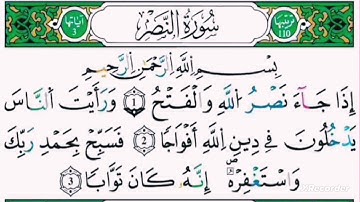 ترتيبها 110 سُورَةُ النَّصْرِ آياتها 3
بِسْمِ اللَّهِ الرَّحْمَٰنِ الرَّحِيمِ
إِذَا جَآءَ نَصْرُ اللَّهِ وَالْفَتْحُ 1 وَرَأَيْتَ النَّاسَ
يَدْخُلُونَ فِي دِينِ اللَّهِ أَفْوَاجًا 2 فَسَبِّحْ بِحَمْدِ رَبِّكَ
وَاسْتَغْفِرْهُ ۚ إِنَّهُ كَانَ تَوَّابًا 3
Recorder